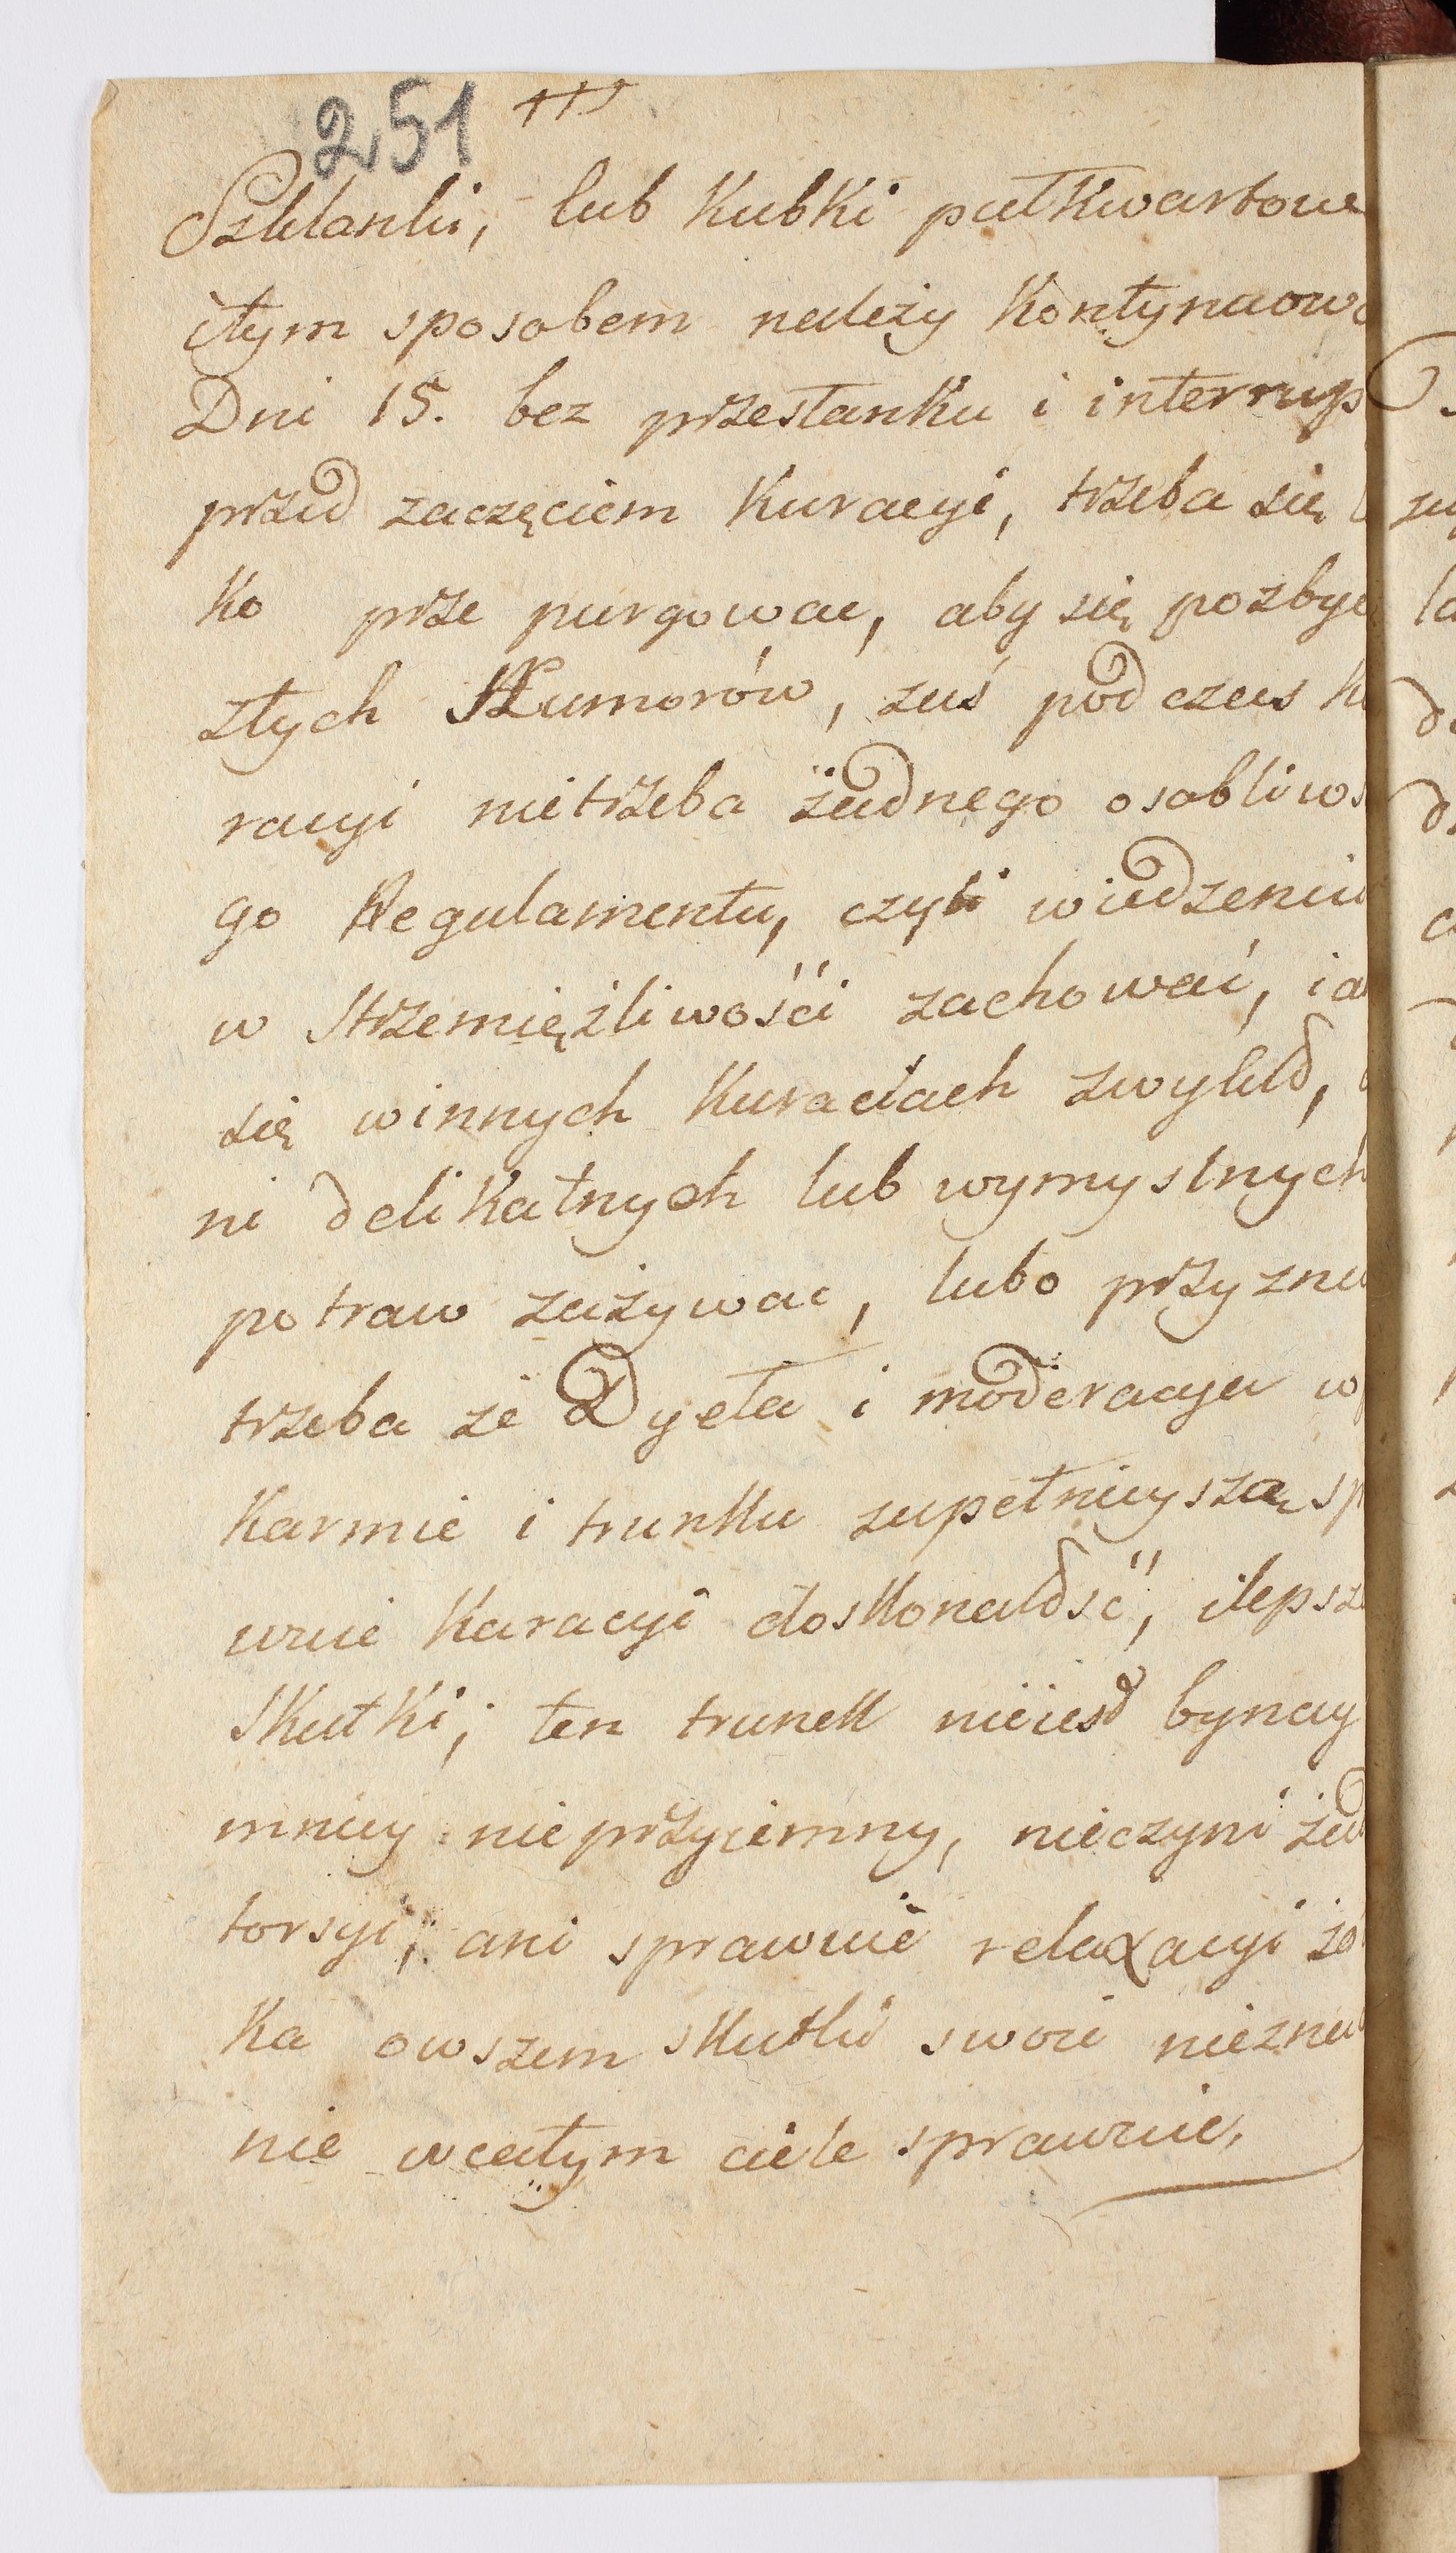 251
Szklanki, lub Kubki pułkwartowe
itym sposobem należy Kontynuowa
Dni 15. bez przestanku i interrup
przed zaczęciem Kuracyi, trzeba się
Ko prze purgowac, aby się pozbyc
złych Humorów, zaś podczas ku
racyi nietrzeba żadnego osobliws
go Regulamentu, czyli wiedzeniu
w Strzemięźliwośći zachować, iak
się winnych Kuraciach zwykło,
ni delikatnych lub wymyslnych
potraw zażywac, lubo przyzna
trzeba że Dyeta i moderacya w
Karmie i trunku zupełnieyszą sp
wuie Karacyi doskonałość, ilepsze
Skutki; ten trunek nieiest bynay
mniey nieprzyiemny, nieczyni żad
torsyi, ani sprawuie relaxacyi żo
Ka owszem skutki swoie niezna
nie wcałym ciele sprawuie,